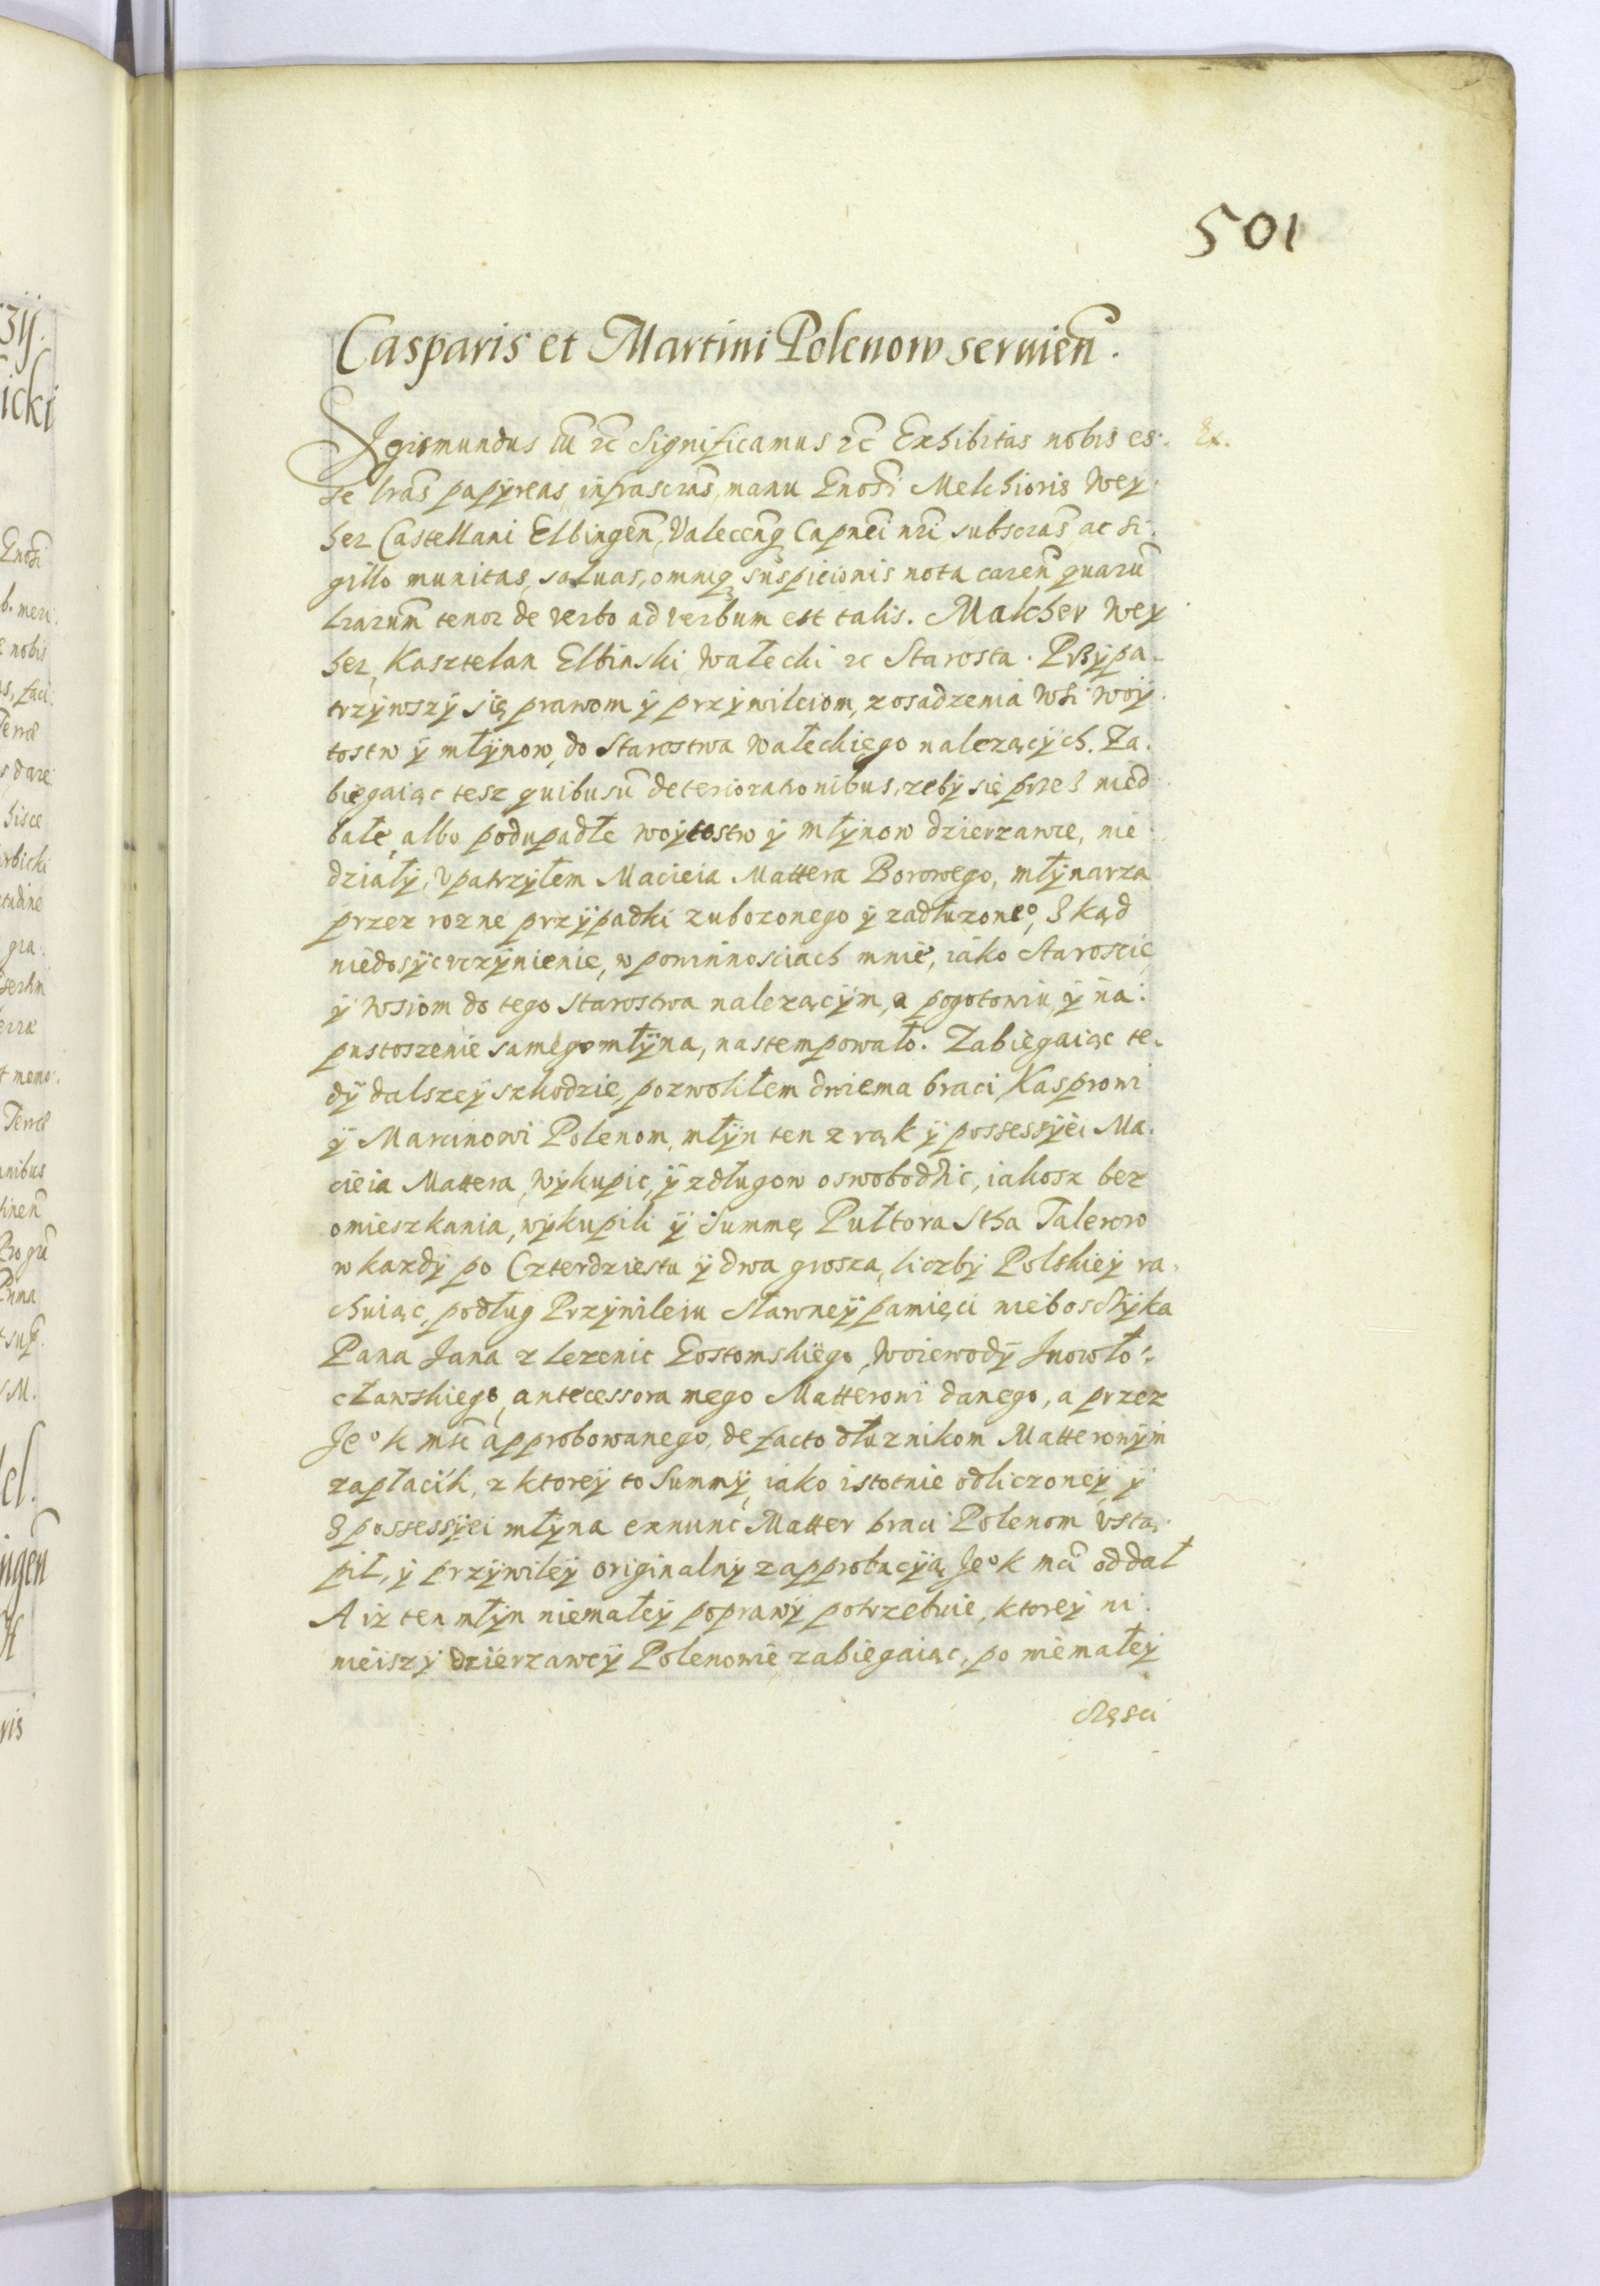 501
Casparis et Martini Polenow seruien̄.
Sigismundus iii̅ ꝛc̄ Significamus ꝛc̄ Exhibitas nobis es- Ex.
se lr̄as papÿreas, infrascr̄as, manu Gnosi Melchioris Wey
her Castellani Elbingen̄, Valecen̄q Capnei nr̄i subscr̄as ac si-
gillo munitas, saluas, omniq suspicionis nota caren̄ quarū
lr̄arum̄ tenor de verbo ad verbum est talis. Malcher Wey
her, Kasztelan Elbinski, Wałecki ꝛc Starosta. Przÿpa-
trzÿwszÿ się prawom ÿ przÿwileiom, z osadzenia Wsi Woÿ-
tostw ÿ młÿnow, do Starostwa Wałeckiego nalezącÿch. Za-
biegaiąc tesz quibusū deteriorationibus, zebÿ się przez nied
bałe, albo podupadłe woÿtostw ÿ młÿnow dzierzawce, nie
działÿ, Vpatrzÿłem Macieia Mattera Borowego, młÿnarza
przez rozne przÿpadki zubozonego ÿ zadłuzoneº, skąd
niedosÿc vczÿnienie, w powinnosciach mnie, iako Staroscie
ÿ Wsiom do tego Starostwa nalezącÿm, a pogotowiu ÿ na-
pustoszenie samego młÿna, nastempowało. Zabiegaiąc te-
dÿ dalszeÿ szkodzie, pozwoliłem dwiema braci Kasprowi
ÿ Marcinowi Polenom, młÿn ten z rąk ÿ possessÿei Ma-
cieia Mattera, Wÿkupic, ÿ z długow oswobodzic, iakosz bez
omieszkania, wÿkupili ÿ Summę Pułtora Stha Talerow
w kazdÿ po Czterdziestu ÿ dwa grosza, liczbÿ Polskieÿ ra-
chuiąc, podług Przÿwileiu sławneÿ pamięci nieboszczÿka
Pana Jana z Lezenic Gostomskiego, Woiewodÿ Inowło-
cławskiego, antecessora mego Matterowi danego, a przez
Jeº K mśc approbowanego, de facto dłuznikom Matterowÿm
zapłacili, z ktoreÿ to Summÿ, iako istotnie odliczoneÿ, ÿ
z possessÿei młÿna exnunc Matter braci Polenom Vstą-
pił, ÿ przÿwileÿ originalnÿ z approbacÿą Jeº K mci oddał
A iz ten młÿn niemałeÿ poprawÿ potrzebuie, ktoreÿ ni-
nieiszÿ dzierzawcÿ Polenowie zabiegaiąc, po niemałeÿ
częsci